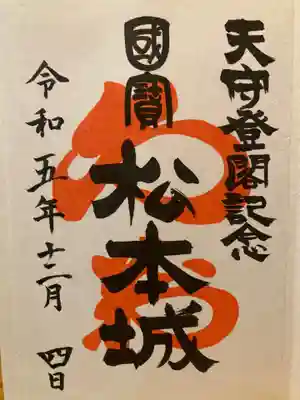 天守登閣記念
國寳
松本城
令和五年十二月四日